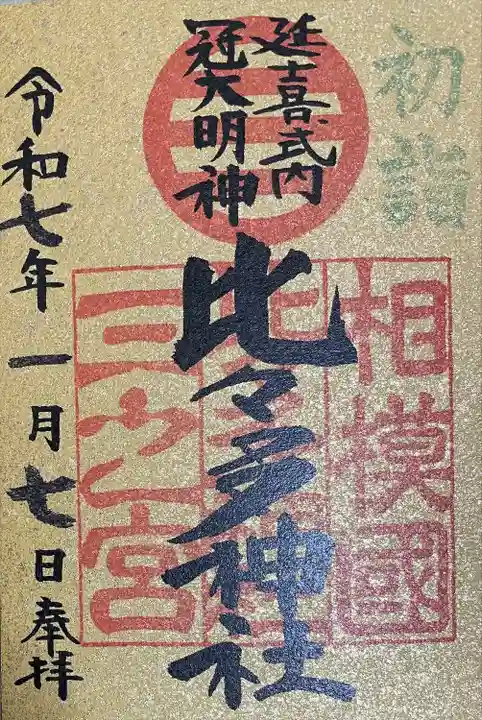 初詣
延喜式内
冠大明神
比々多神社
相模國
三之宮
令和七年 一月七日奉拝